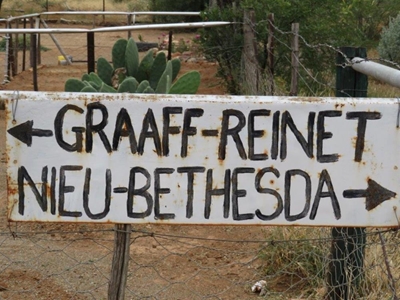 GRAAFF-REINET
NIEU-BETHESDA